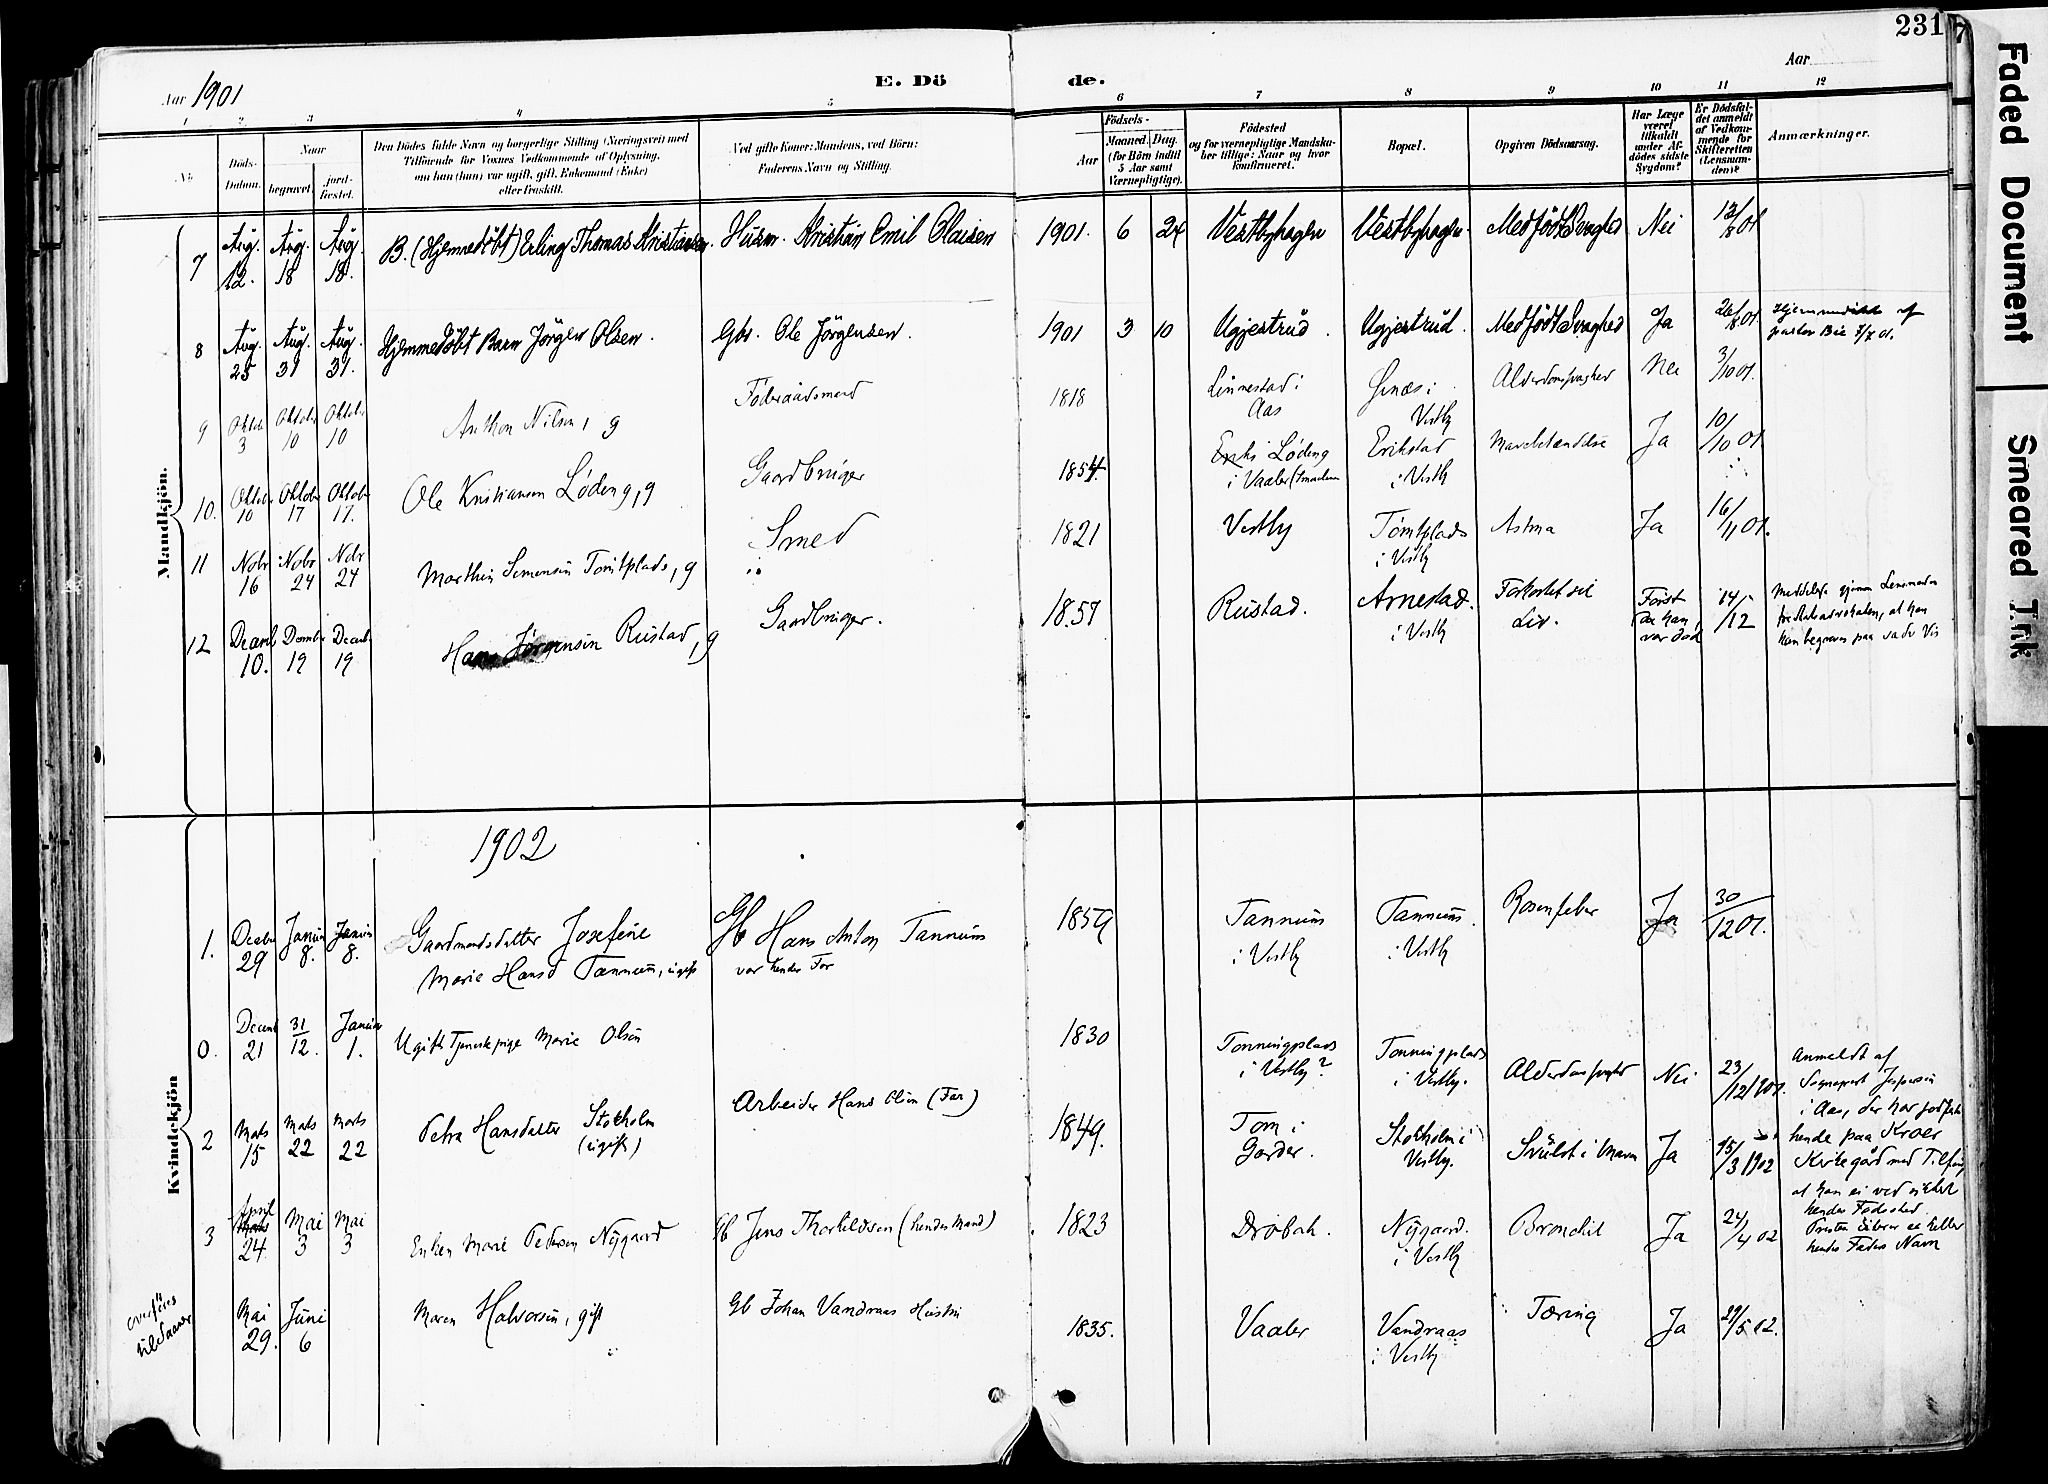 231
Aar 1901
E. Dö
de.
Aar
1 2 3 4 5 6 7 8 9 10 11 12
No
Döds-Datum.
Naar
begravet.
jord-fæstet.
Den Dödes fulde Navn og borgerlige Stilling (Næringsvei) med
Tilföiende for Voxnes Vedkommende af Oplysning,
om han (hun) var ugift, gift, Enkemand (Enke)
eller fraskilt.
Ved gifte Koner: Mandens, ved Börn:
Faderens Navn og Stilling.
Födsels-
Aar
Maaned. Dag.
(for Börn indtil
5 Aar samt
Værnepligtige).
Födested
og for værnepligtige Mandska-
ber tillige: Naar og hvor
konfirmeret.
Bopæl.
Opgiven Dödsaarsag.
Har Læge
været
tilkaldt
under Af-
dödes sidste
Sygdom?
Er Dödsfal-
det anmeldt
af Vedkom-
mende for
Skifteretten
(Lensman-
den)?
Anmærkninger.
Mandkjön.
7 Aug. 12. Aug. 18 Aug. 18. B. (Hjemmedöbt) Erling Thomas Kristiansen. Husm. Kristian Emil Olaisen 1901. 6 24 Vestbyhagen Vestbyhagen Medfödt Svaghed Nei 12/8 01
8 Aug. 25 Aug. 31 Aug. 31. Hjemmedöbt Barn Jörgen Olsen. Gbr. Ole Jörgensen. 1901 3 10 Ugjestrud. Ugjestrud. Medfödt Svaghed Ja 26/8 01 Hjemmedöbt af
pastor Bie 01.
9 Oktob 3 Oktobr 10 Oktobr 10 Anthon Nilsen, g Föderaadsmand 1818 Linnestad i
Aas i
Vestby Alderdomsvaghed Nei 3/10 01.
10. Oktobr 10 Oktobr 17 Oktobr 17. Ole Kristiansen Löding, g Gaardbruger 1854. Löding
i Vaaler (Smaalenene Erikstad
i Vestby Ja 10/10 01
11 Nobr 16 Nobr 24 Nobr 24 Marthin Simensen Tomtplads, g Smed 1821 Vestby Tomtplads
i Vestby Astma Ja 16/11 01.
12 Decemb 10. Decembr 19 Decembr 19 Hans Jörgensen Rustad, g Gaardbruger. 1857 Rustad. Arnestad.
i Vestby Forkortet sit
Liv. Först
da han
var död 14/12 Meddelelse gjennem Lensmanden
fra Statsadvokaten, at han
kan begraves paa vadv Vis
Kvindekjön
1902
1. Decbr 29 Januar 8. Januar 8. Gaardmandsdatter Josefine
Marie Hansd Tannum, ugift Gb Hans Anton Tannum
var hendes Far 1859 Tannum
i Vestby Tannum.
i Vestby Rosenfeber Ja 30/12 01.
0. Decemb 21 31/12. Januar 1. Ugift Tjenestepige Marie Olsen 1830 Tonningplads
i Vestby? Tonningplads
i Vestby. Alderdomsvaghed Nei 23/12 1901. Anmeldt af
Sogneprest Jespersen
i Aas, der har jordfæstet
hende paa Kroer
Kirkegård med Tilföi
at han ei ved sikkert
hendes Födested.
Presten skriver ei heller
hendes Faders Navn
2 Marts 15 Marts 22 Marts 22 Petra Hansdatter Stokholm
(ugift) Arbeider Hans Olsen (Far) 1849. Tom i
Garder. Stokholm i
Vestby. Svulst i Maven Ja 15/3 1902
3 April 24. Mai 3 Mai 3 Enken Marie Pedersen Nygaard Gb Jens Thorkildsen (hendes Mand) 1823 Dröbak. Nygaard.
i Vestby Bronchit Ja 24/4 02
overföres
til Saaner
4 Mai 29. Juni 6 Maren Halvorsen, gift Gb Johan Vandraas Hustru 1835. Vaaler Vandraas
i Vestby Tæring Ja 29/5 02.
Faded Document
Smeared Ink